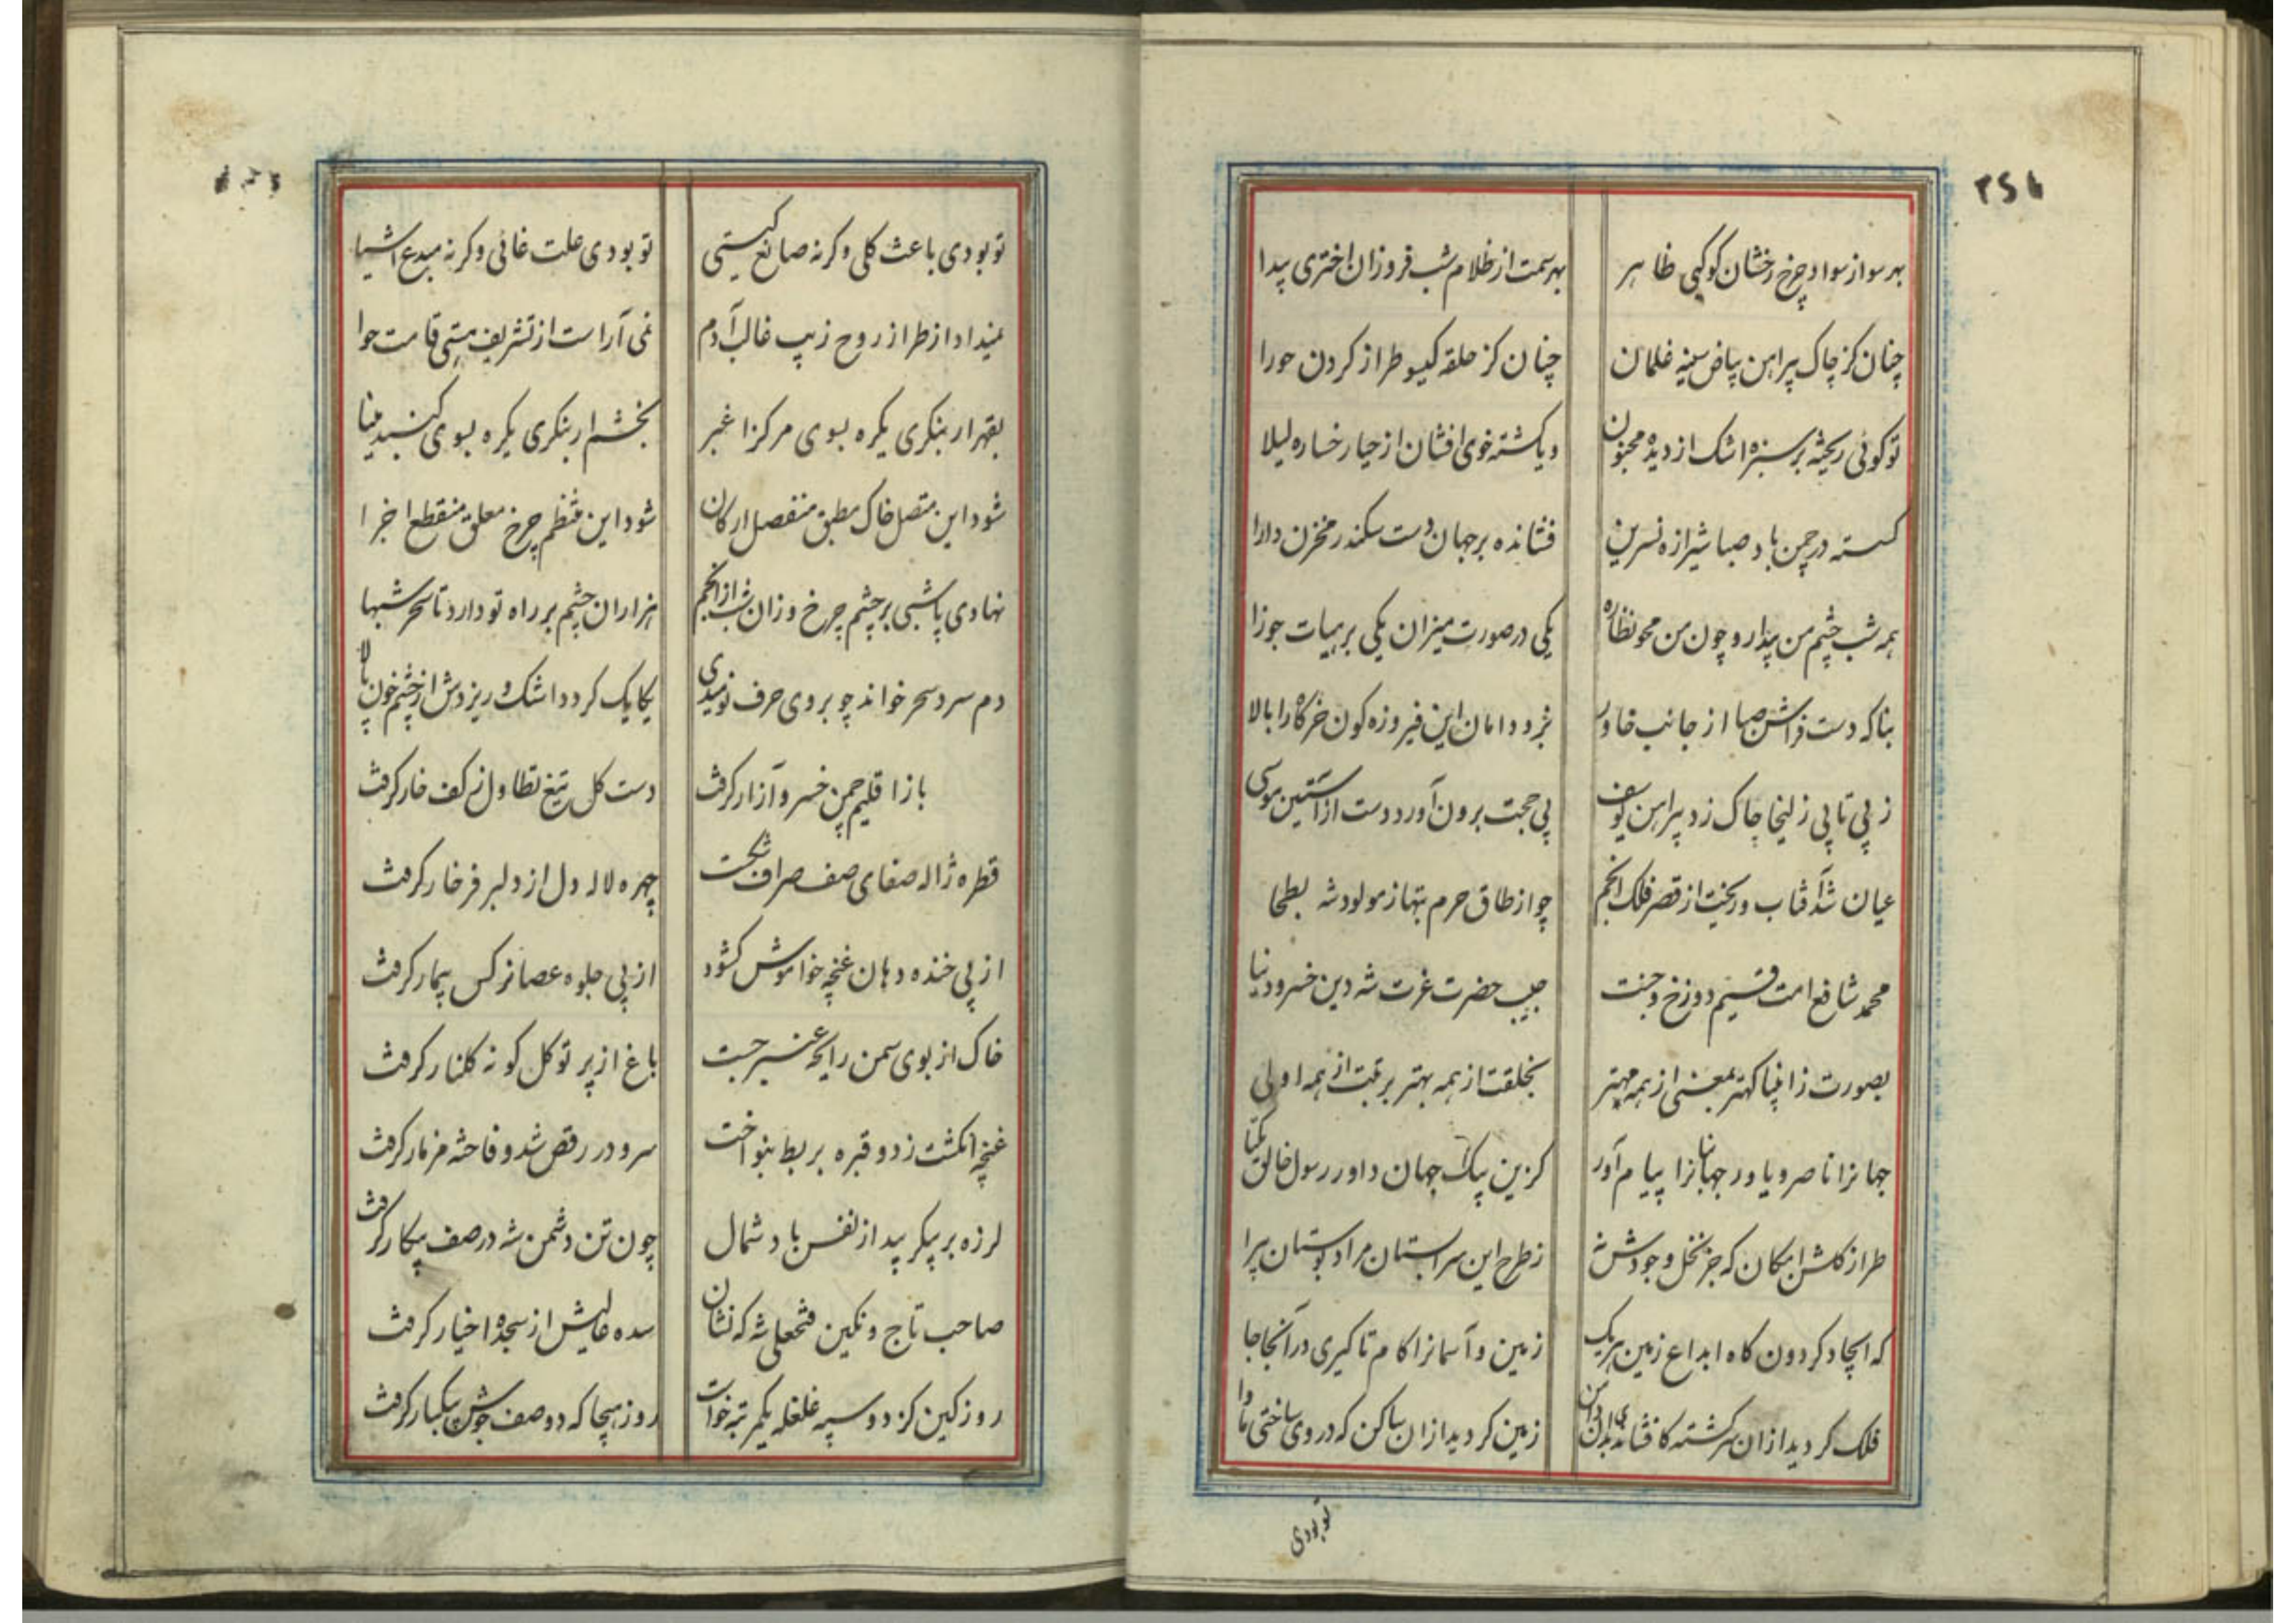 بهر سو از سواد چرخ رخشان کوکبی ظاهر بهر سمت از ظلام شب فروزان اختری پیدا
چنان کز چاک پیراهن بیاض سینه غلمان چنان کز حلقه کیسو طراز کردن حورا
تو کوئی ریخته بر سبزه اشک از دیده مجنون و یا کشته خوی افشان از حیا رخساره لیلا
کسسته در چمن باد صبا شیرازه نسرین فشانده بر جهان دست سکندر مخزن دارا
همه شب چشم من بیدار و چون من محو نظاره یکی در صورت میزان یکی بر هیات جوزا
بناکه دست فراش صبا از جانب خاور بزد دامان این فیروزه کون خرکاه را بالا
ز پی تا پی زلیخا چاک زد پیراهن یوسف پی حجت برون آورد دست از آستین موسی
عیان شد آفتاب و ریخت از قصر فلک انجم چو از طاق حرم بتها ز مولود شه بطحا
محمد شافع امت قسیم دوزخ و جنت حبیب حضرت عزت شه دین خسرو دنیا
بصورت ز انبیا کهتر بمعنی از همه مهتر بخلقت از همه بهتر برتبت از همه اولی
جهانرا ناصر و یاور جهانبانرا پیام آور کزین پیک جهان داور رسول خالق یکتا
طراز کلشن امکان که جز نخل وجودش نه ز طرح این سرابستان مراد بوستان پیرا
که ایجاد کردون کاه ابداع زمین هریک زمین و آسمانرا کام تا کیری در آنجا جا
فلک کردید از آن سرکشته کافشاندی بدان دامن زمین کردید از آن ساکن که در وی ساختی ماوا
تو بودی
تو بودی باعث کلی وکرنه صانع کیتی تو بودی علت غائی وکرنه مبدع اشیا
نمیداد از طراز روح زیب قالب آدم نمی آراست از تشریف هستی قامت حوا
بقهر ار بنکری یکره بسوی مرکز اغبر بخشم ار بنکری یکره بسوی کنبد مینا
شود این متصل خاک مطبق منفصل ارکان شود این منتظم چرخ معلق منقطع اجزا
نهادی پا شبی بر چشم چرخ و زان شب از انجم هزاران چشم بر راه تو دارد تا سحر شبها
دم سرد سحر خواند چو بر وی حرف نومیدی یکایک کردد اشک و ریزدش از چشم خون پالا
باز اقلیم چمن خسرو آزار کرفت دست کل تیغ تطاول ز کف خار کرفت
قطره ژاله صفای صف صراف شکست چهره لاله دل از دلبر فرخار کرفت
از پی خنده دهان غنچه خواموش کشود از پی جلوه عصا نرکس بیمار کرفت
خاک از بوی سمن رایحه عنبر جست باغ از پرتو کل کونه کلنار کرفت
غنچه انکشت زد و قبره بربط بنواخت سرو در رقص شد و فاخته مزمار کرفت
لرزه بر پیکر بید از نفس باد شمال چون تن دشمن شه در صف پیکار کرفت
صاحب تاج و نکین فتحعلی شه که نشان سده عالیش از سجده اخیار کرفت
روز کین کز دو سپه غلغله یکمرتبه خواست روز هیجا که دو صف جوش بیکبار کرفت